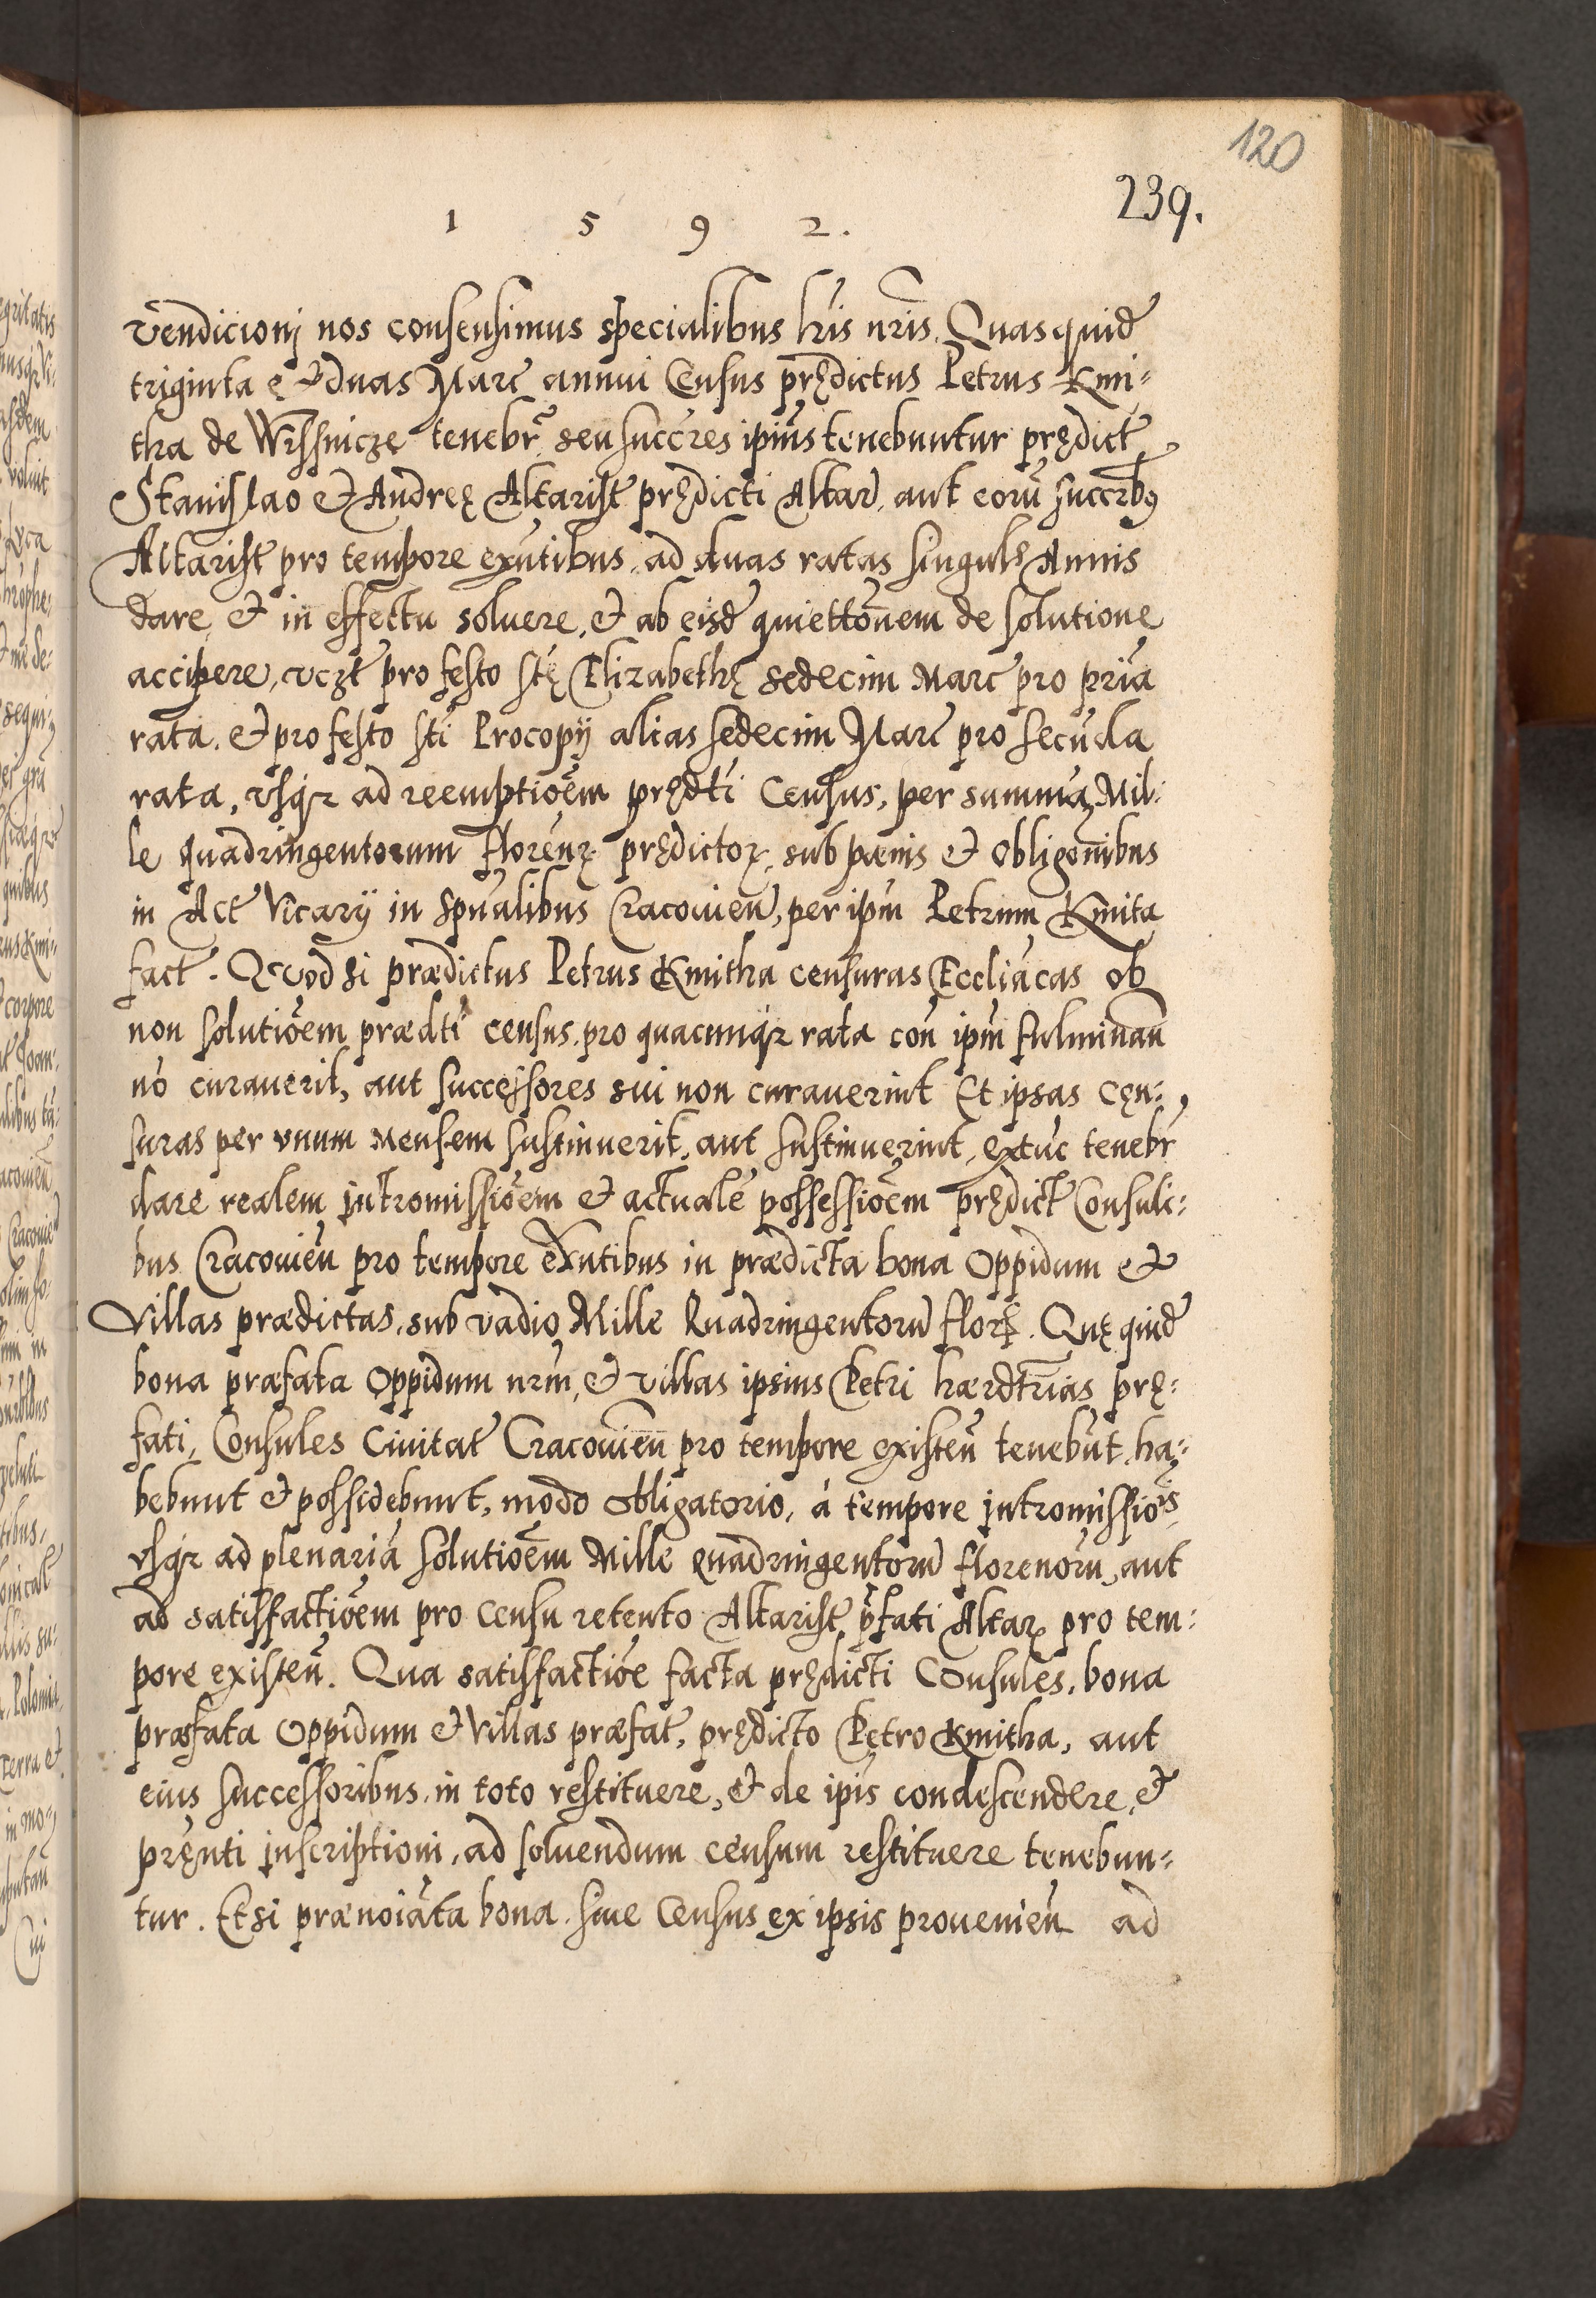 120
239.
1 5 9 2.
vendicionj nos consensimus specialibus lr̃is nr̃is. Quasquid̃
triginta et duas Marc̃ annui Census prędictus Petrus Kmi:
tha de Wissnicze tenebr̃ seu succr̃es ipiũs tenebuntur prędict̃
Stanislao et Andreę Altarist̃ prędicti Altar̃, aut eorũ succr̃bꝫ
Altarist̃ pro tempore exñtibus, ad duas ratas singul̃ Annis
dare, et in effectu soluere, et ab eisd̃ quiettõnem de solutione
accipere, vczt̃ pro festo stę Elizabethę sedecim Marc̃ pro pria
rata. et pro festo sti Procopij alias sedecim Marc̃ pro secũda
rata, vsqꝫ ad reemptiõem prędti Census, per summã Mil:
le quadringentorum florenꝝ prędictoꝝ, sub pœnis et obligõnibus
in Act̃ Vicarij in spũalibus Cracouien̄, per ipm̃ Petrum Kmita
fact̃. Qvod si prædictus Petrus Kmitha censuras Eccliãcas ob
non solutiõem prædti census, pro quacunqꝫ rata coñ ipm̃ fulminan̄
nõ curauerit, aut successores sui non curauerint Et ipsas cęn:
suras per vnum Mensem sustinuerit, aut sustinuerint, extũc tenebr̃
dare realem jntromissiõem et actualẽ possessiõem prędict̃ Consuli:
bus Cracouien̄ pro tempore exñtibus in prædicta bona Oppidum et
Villas prædictas, sub vadio Mille Quadringentorũ florꝝ. Quę quid̃
bona præfata Oppidum nr̃m, et villas ipsius Petri hærdtr̃ias prę:
fati, Consules Ciuitat̃ Cracouien̄ pro tempore existen̄ tenebũt, ha:
bebunt et possidebunt, modo obligatorio, à tempore jntromissiõis,
vsqꝫ ad plenariã solutiõem Mille quadringentorũ florenorũ, aut
ad satisfactiõem pro Censu retento Altarist̃ p̃fati Altaꝝ pro tem:
pore existen̄. Qua satisfactiõe facta prędicti Consules, bona
præfata Oppidum et Villas præfat̃, prędicto Petro Kmitha, aut
eius successoribus in toto restituere, et de ipis condescendere, et
pręnti jnscriptioni, ad soluendum censum restituere tenebun:
tur. Et si prænoiãta bona siue Census ex ipsis prouenien̄ ad